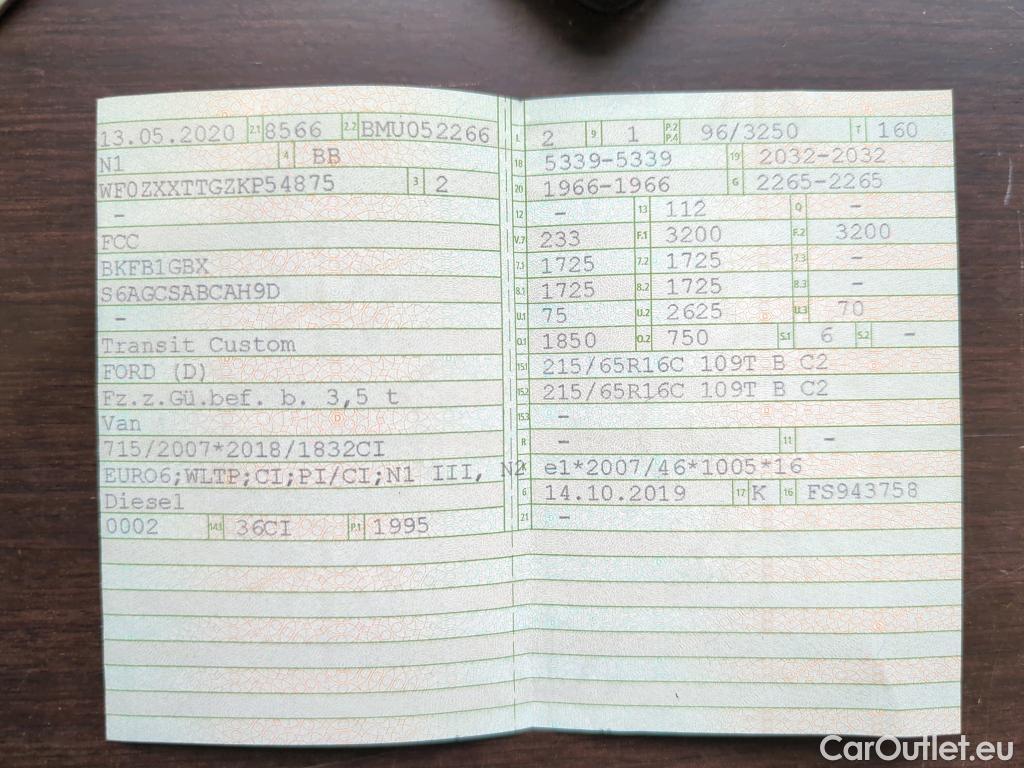 13.05.2020 2.1 8566 2.2 BMU052266
N1 4 BB
WF0ZXXTTGZKP54875 3 2
–
FCC
BKFB1GBX
S6AGCSABCAH9D
–
Transit Custom
FORD (D)
Fz.z.Gü.bef. b. 3,5 t
Van
715/2007*2018/1832CI
EURO6;WLTP;CI;PI/CI;N1 III, N2
Diesel
0002 14.3 36CI P.1 1995
L 2 9 1 P.2 P.4 96/3250 T 160
18 5339-5339 19 2032-2032
20 1966-1966 G 2265-2265
12 – 13 112 Q –
V.7 233 F.1 3200 F.2 3200
7.1 1725 7.2 1725 7.3 –
8.1 1725 8.2 1725 8.3 –
U.1 75 U.2 2625 U.3 70
O.1 1850 O.2 750 S.1 6 S.2 –
15.1 215/65R16C 109T B C2
15.2 215/65R16C 109T B C2
15.3 –
R – 11 –
K e1*2007/46*1005*16
6 14.10.2019 17 K 16 FS943758
21 –
CarOutlet.eu